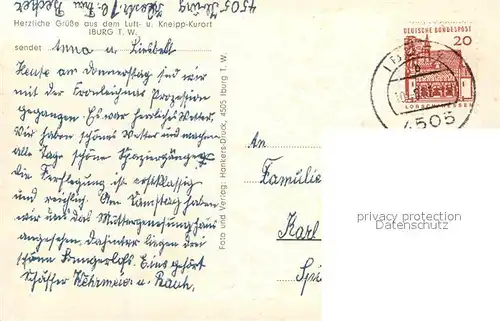 4505 Iburg
Herzliche Grüße aus dem Luft- u. Kneipp-Kurort
IBURG T. W.
sendet Anna u. Liesbet
Heute am Donnerstag sind wir
mit der Fronleichnams Prozession
gegangen. Es war herrliches Wetter.
Wir haben schönes Wetter und machen
alle Tage schöne Spaziergänge
die Verpflegung ist erstklassig
und reichlich. Am Samstag haben
wir uns das Müttergenesungshaus
angesehen. Dahinter liegen drei
schöne Bungerlofs. Eins gehört
Schäffer Kehrmeier u. Rauh.
Foto und Verlag: Hankers-Druck, 4505 Iburg T. W.
DEUTSCHE BUNDESPOST
20
LORSCH HESSEN
4505
An
Familie
Karl
privacy protection
Datenschutz